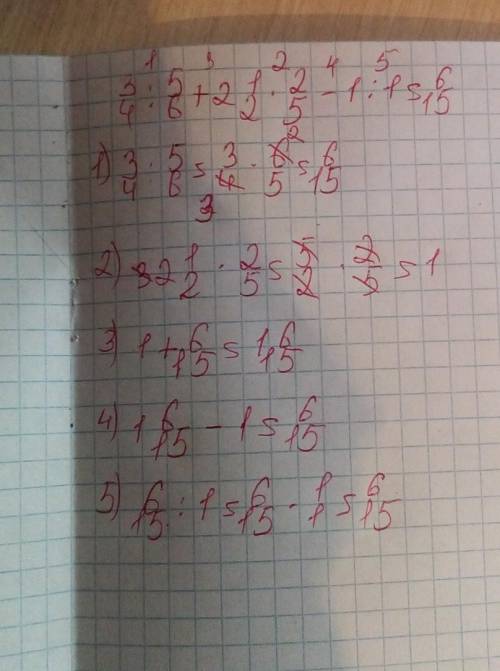 1 3 2 4 5
3/4 : 5/6 + 2 1/2 · 2/5 - 1 : 1 = 6/15
1) 3/4 : 5/6 = 3/4 · 6/5 = 6/15
3 2
2) 2 1/2 · 2/5 = 5/2 · 2/5 = 1
3) 1 + 6/15 = 1 6/15
4) 1 6/15 - 1 = 6/15
5) 6/15 : 1 = 6/15 · 1/1 = 6/15